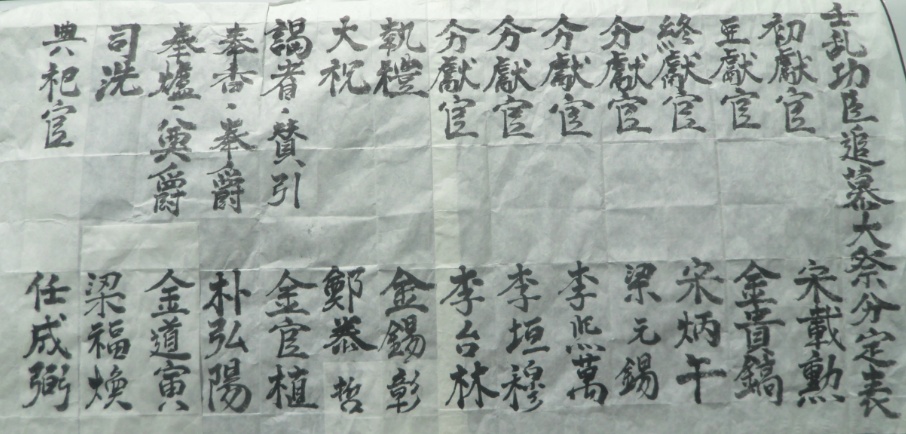 壬乱功臣追慕大祭分定表
初獻官 宋載勳
亞獻官 金直鎬
終獻官 宋炳午
分獻官 梁元錫
分獻官 李熙萬
分獻官 李垣穆
分獻官 李台林
執禮 金錫彰
大祝 鄭泰哲
謁者·賛引 金官植
奉香·奉爵 朴弘陽
奉爐·奠爵 金道寅
司洗 梁福煥
典祀官 任成弼